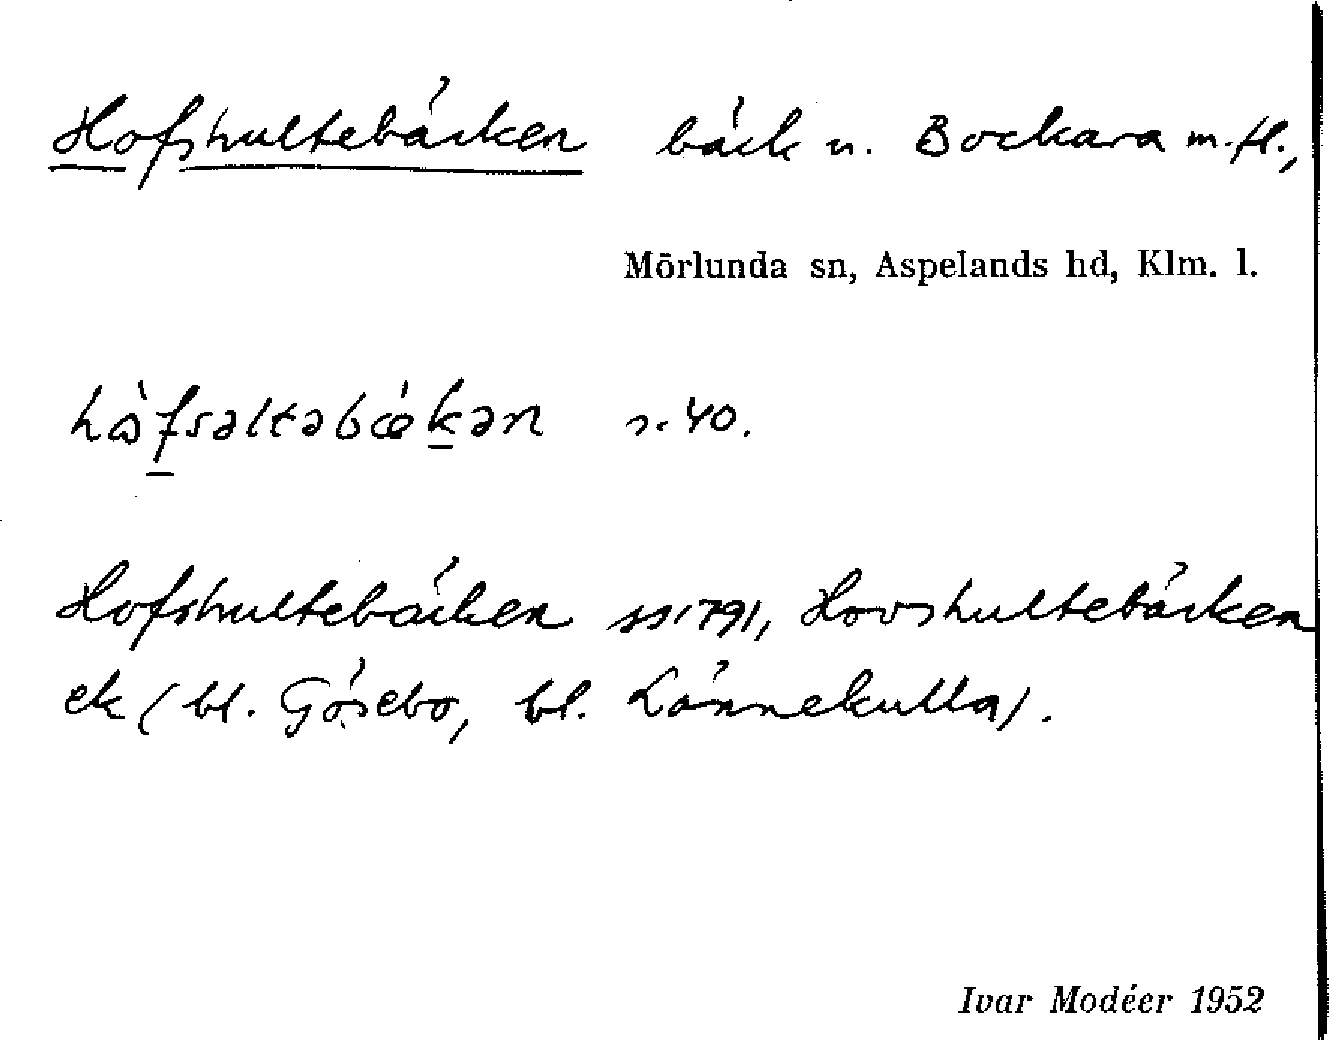 Hofshultebäcken bäck n. Bockara m.fl.,
Mörlunda sn, Aspelands hd, Klm. l.
40.
Hofshultebäcken ss 1791, Hovshultebäcken
ek (bl. Gösebo, bl. Lönnekulla).
Ivar Modéer 1952